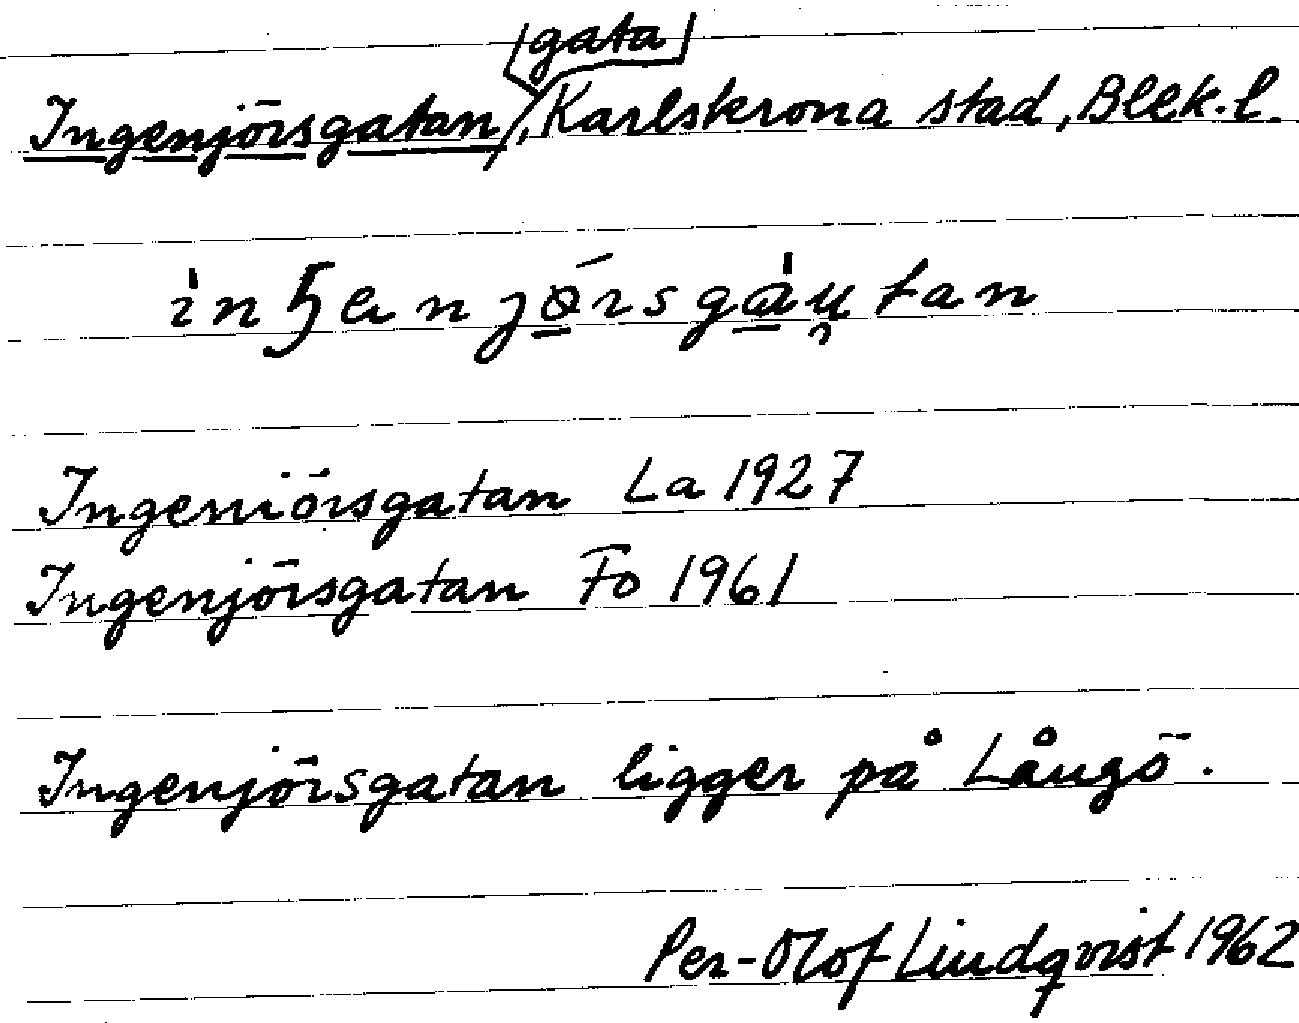 gata
Ingenjörsgatan, Karlskrona stad, Blek.l.
Ingeniörsgatan La 1927
Ingenjörsgatan Fo 1961
Ingenjörsgatan ligger på Långö.
Per-Olof Lindqvist 1962